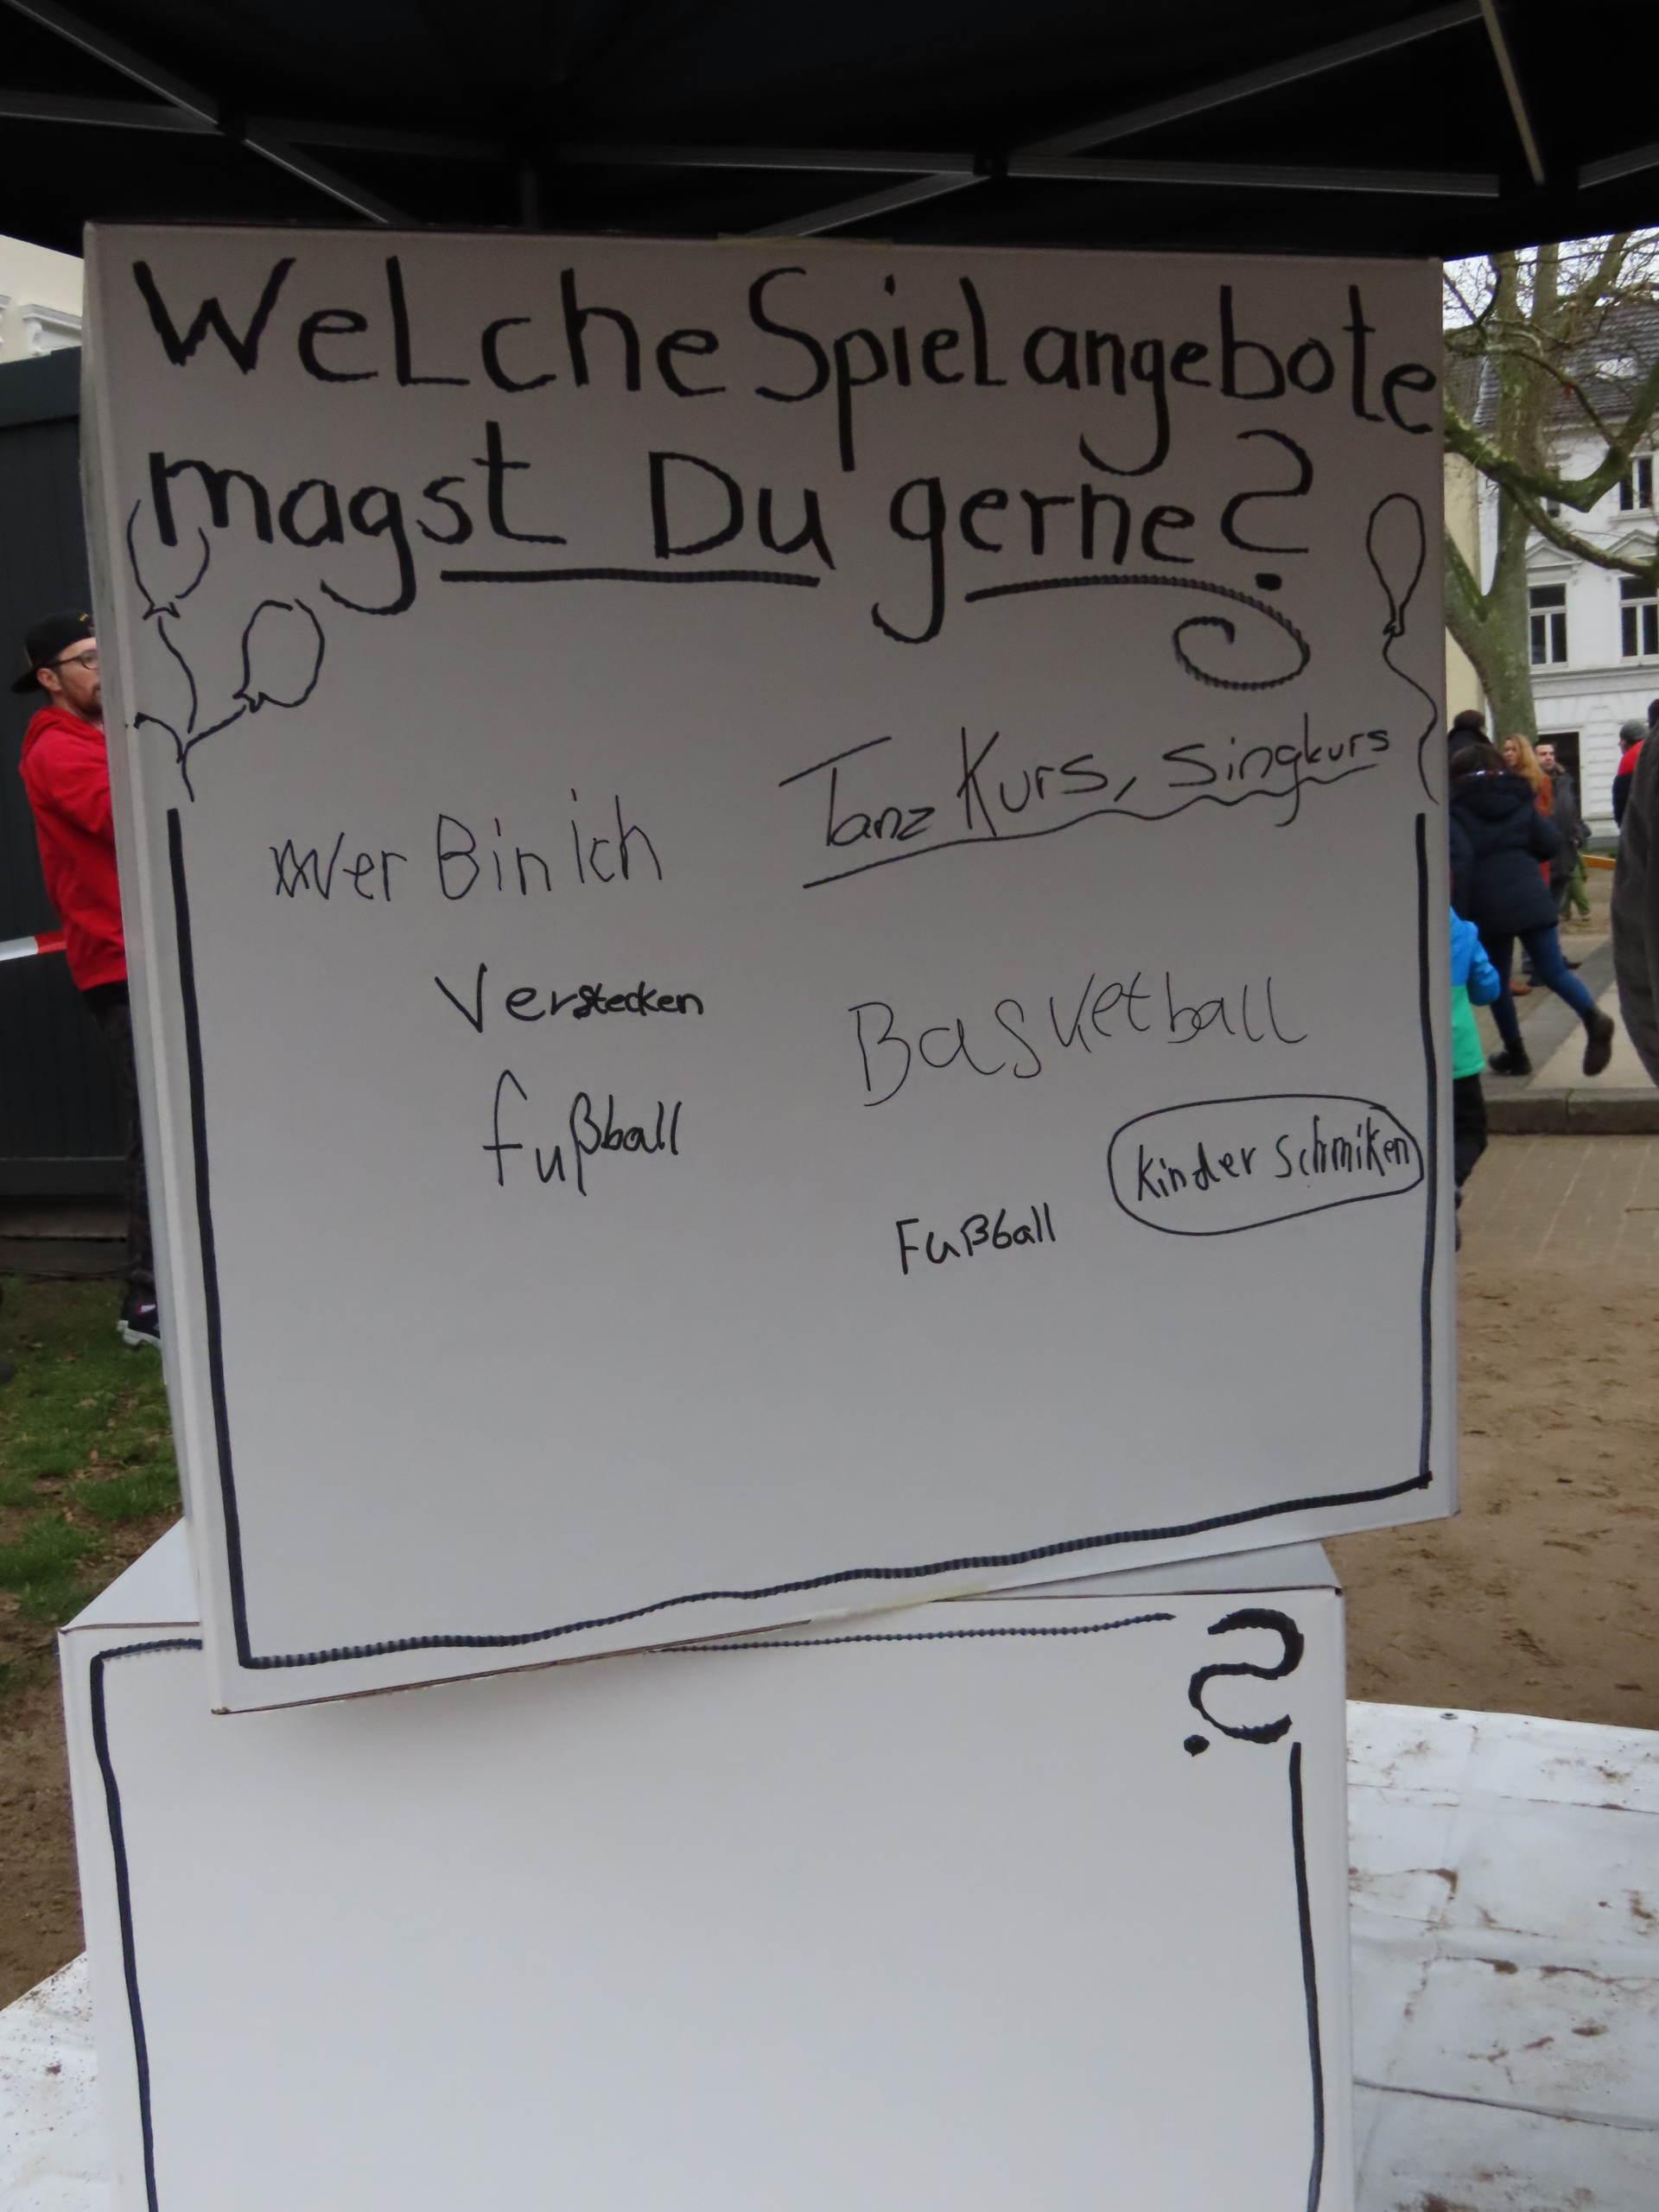 Welche Spielangebote
magst Du gerne?
Tanz Kurs, Singkurs
Wer Bin ich
Verstecken
Basketball
fußball
Kinder Schmiken
Fußball
?